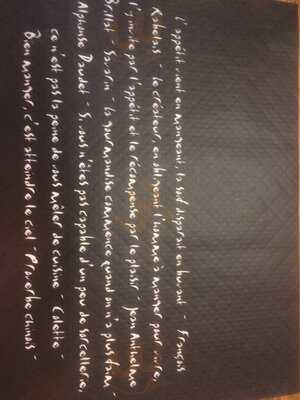 l'appétit vient en mangeant, la soif disparait en buvant - François
Rabelais - le créateur, en obligeant l'homme à manger pour vivre,
l'y invite par l'appétit et le récompense par le plaisir - Jean Anthelme
Brillat-Savarin - la gourmandise commence quand on n'a plus faim -
Alphonse Daudet - Si vous n'êtes pas capable d'un peu de sorcellerie,
ce n'est pas la peine de vous mêler de cuisine - Colette -
Bien manger, c'est atteindre le ciel - Proverbe chinois -